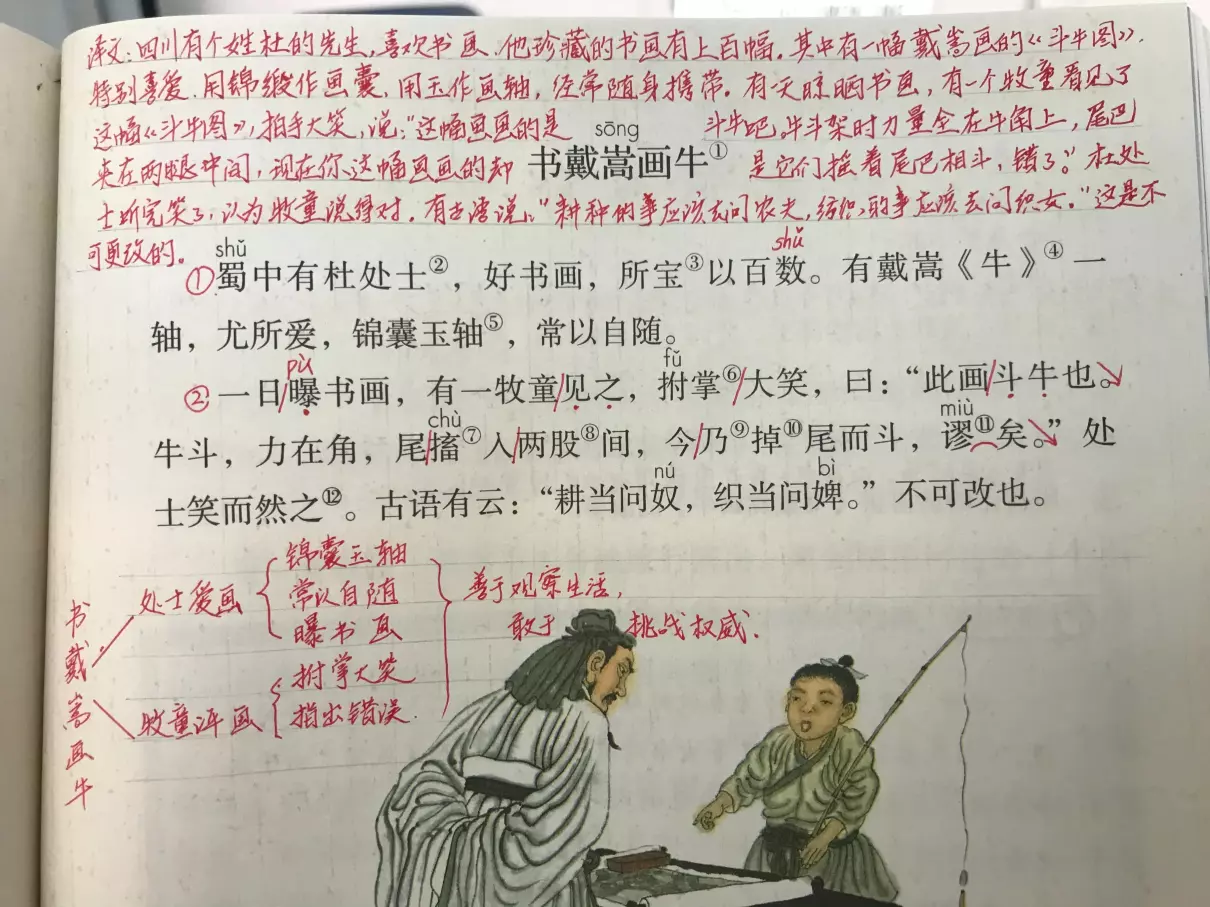 译文:四川有个姓杜的先生,喜欢书画,他珍藏的书画有上百幅。其中有一幅戴嵩画的《斗牛图》.
特别喜爱.用锦缎作画囊,用玉作画轴,经常随身携带。有一天晾晒书画,有一个牧童看见了
这幅《斗牛图》,拍手大笑,说:“这幅画画的是 斗牛吧,牛斗架时力量全在牛角上,尾巴
sōng
夹在两腿中间,现在你这幅画画的却 是它们摇着尾巴相斗,错了。”杜处
书戴嵩画牛①
士听完笑了,认为牧童说得对。有古语说:“耕种的事应该去问农夫,纺织的事应该去问织女。”这是不
可更改的。
shǔ shǔ
①蜀中有杜处士②,好书画,所宝③以百数。有戴嵩《牛》④一
轴,尤所爱,锦囊玉轴⑤,常以自随。
pù fǔ
②一日/曝书画,有一牧童/见之,拊掌⑥/大笑,曰:“此画/斗牛也。
chù miù
牛斗,力在角,尾/搐⑦入/两股⑧间,今/乃⑨掉⑩尾而斗,谬⑪矣。”处
nú bì
士笑而然之⑫。古语有云:“耕当问奴,织当问婢。”不可改也。
书戴嵩画牛
处士爱画
锦囊玉轴
常以自随
曝书画
牧童评画
拊掌大笑
指出错误.
善于观察生活,
敢于 挑战权威.